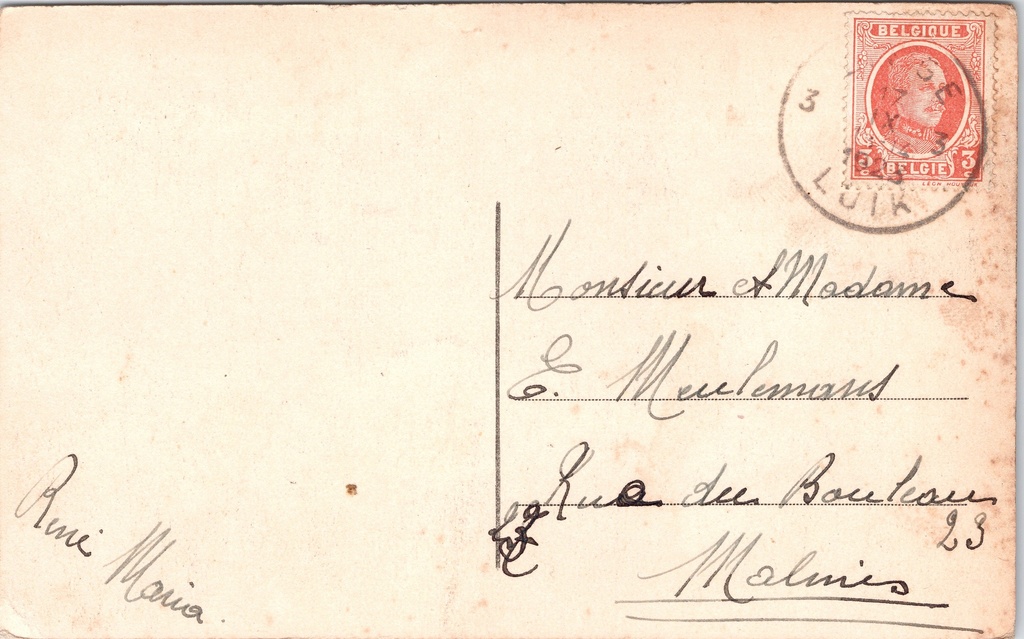 BELGIQUE
3 3
BELGIE
3 3
LUIK
Monsieur et Madame
E. Meulemans
Rue du Bouleau
23
Malines
René Maria.